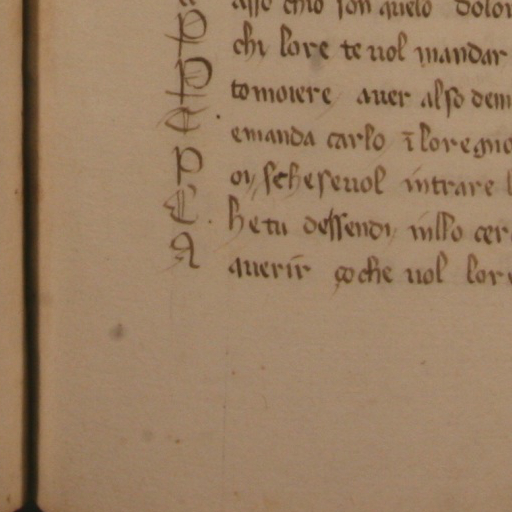 asso chio son quelo dolor
P chi lore te uol mandar
P tomoiere auer also dem
E emanda carlo ī loregno
P oi sehe se uol intrare l
C he tu dessendi insso cer
A auerir ço che uol lore